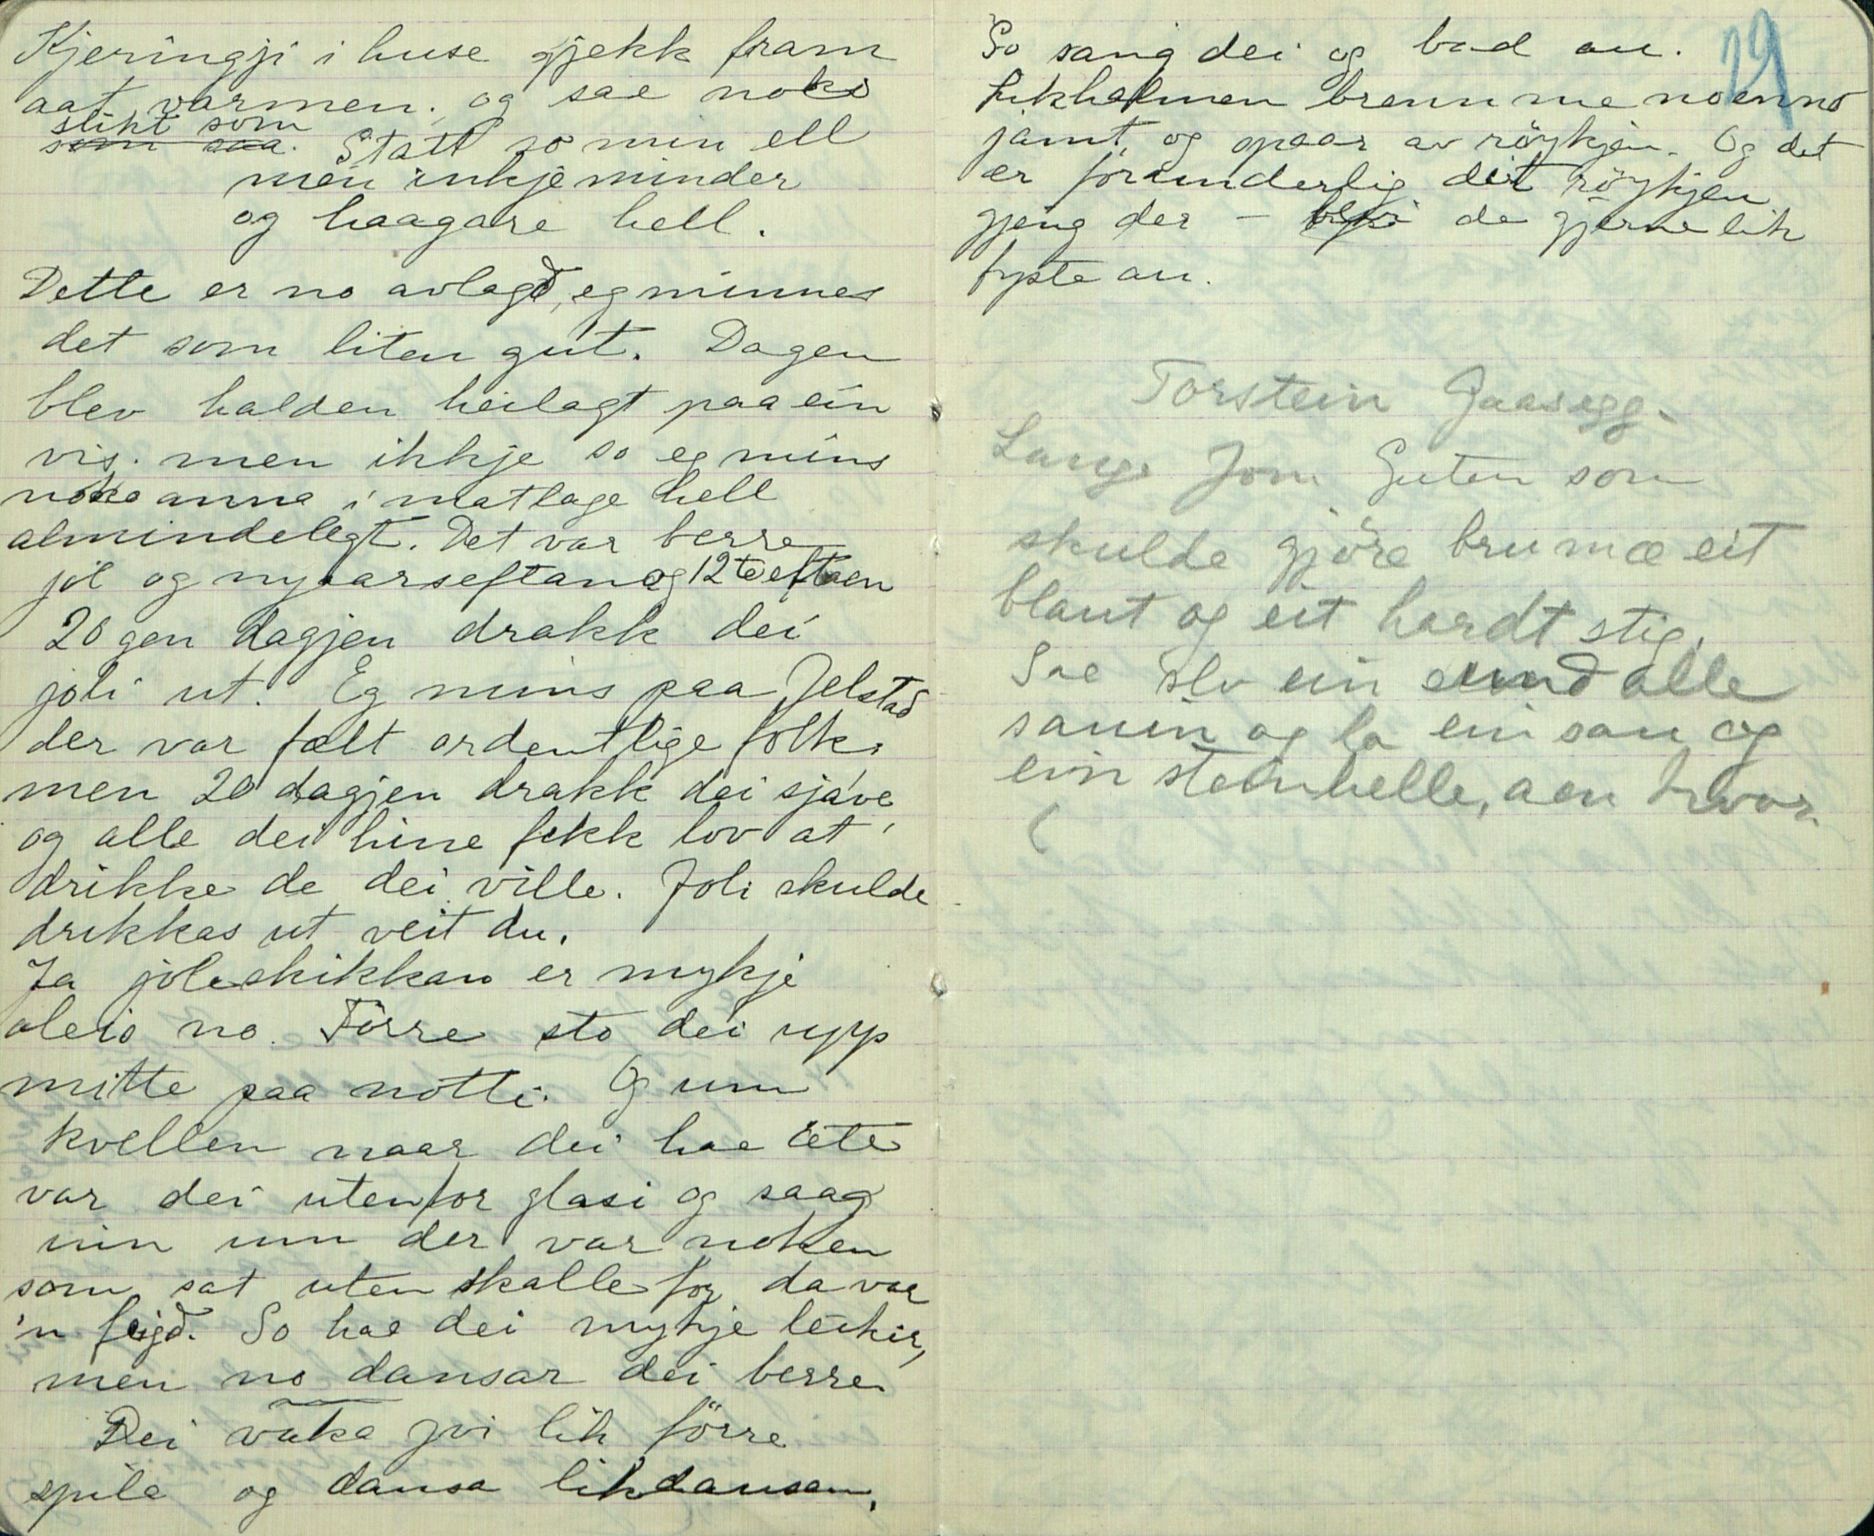 Kjeringji i huse gjekk fram
aat varmen. og sae noko
slikt som
som saa. Statt so min ell
men inkje minder
og haagare hell.
Dette er no avlagð, eg minnes
det som liten gut. Dagen
blev halden heilagt paa ein
vis. men ikkje so eg mins
noko anna i matlage hell
almindelegt. Det var berre
jol og nyaarseftan og 12te eftaen
20gen dagjen drakk dei
joli ut. Eg mins paa Jelstad
der var fælt ordentlige folk,
men 20 dagjen drakk dei sjave
og alle dei hine fekk lov at
drikke de dei ville. Joli skulde
drikkas ut veit du.
Ja joleskikkan er mykje
aleio no. Förre sto dei upp
mitte paa notti. Og um
kvellen naar dei hae ete
var dei utenfor glasi og saag
inn um der var noken
som sat uten skalle for da var
'n feigð. So hae dei mykje leikir,
men no dansar dei berre
Dei vaka yvi lik förre
spila og dansa likdansen.
29
So sang dei og bad au.
Likhalmen brenn me no enno
jamt, og spaar av röykjen. Og det
er forunderlig deit röykjen
gjeng der – blevi de gjerne lik
fyste au.
Torstein Gaasegg.
Lange Jon Guten som
skulde gjöre bru mæ eit
blaut og eit hardt stig.
Sae slo ein alle
sauin og la ein sau og
ein steinhelle, aen hvor.
(